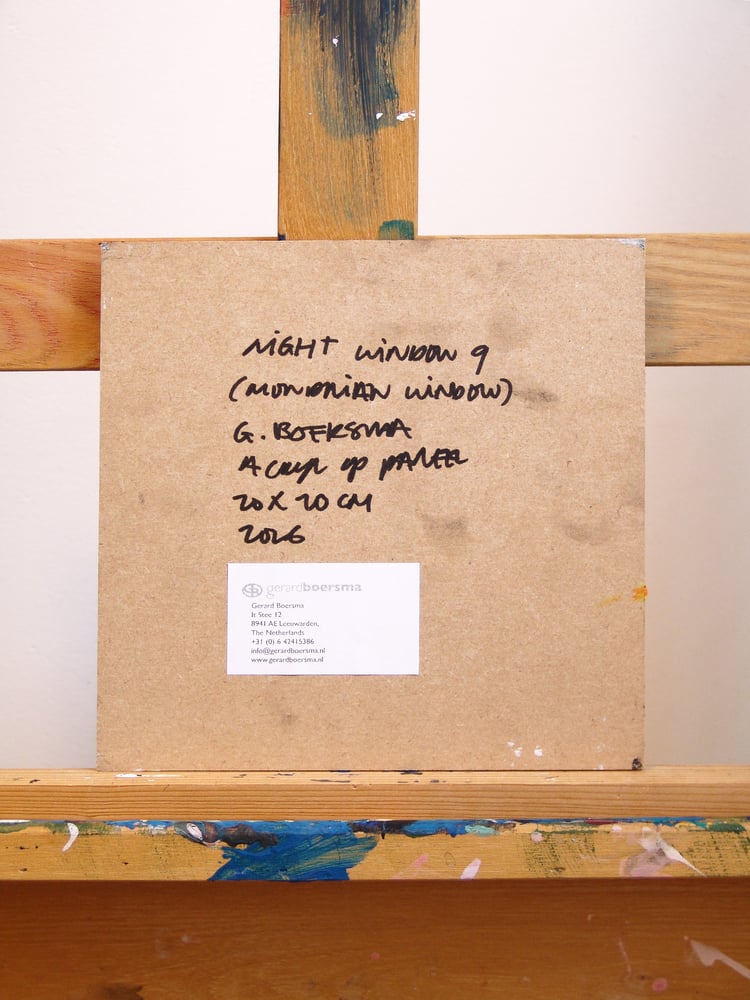 NIGHT WINDOW 9
(MONDRIAN WINDOW)
G. BOERSMA
ACRYL OP PANEEL
20 X 20 CM
2026
gerardboersma
Gerard Boersma
It Stee 12
8941 AE Leeuwarden,
The Netherlands
+31 (0) 6 42415386
info@gerardboersma.nl
www.gerardboersma.nl